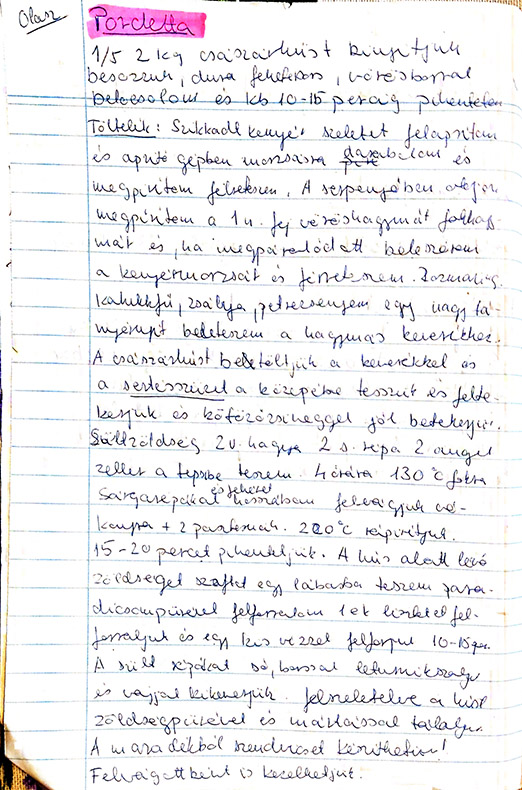 Olasz
Pordetta
1/5 2 kg császárhúst kinyitjuk
besózzuk, durva feketebors, vörösborral
belocsolom és kb 10-15 percig pihentetem
Töltelék: Szikkadt kenyér szeletet felaprítom
és aprító gépben morzsára darabolom és
megpirítom félreteszem. A serpenyőben olajon
megpirítom a 1 n. fej vöröshagymát fokhagy-
mát és, ha megpárolódott beleszórom
a kenyérmorzsát és félreteszem. Rozmaring,
kakukkfű, zsálya, petrezselyem egy nagy tá-
nyérnyit beleteszem a hagymás keverékhez.
A császárhúst betöltjük a keverékkel és
a sertésszüzet a közepébe tesszük és felte-
kerjük és kötözőzsineggel jól betekerjük.
Sültzöldség 2 v. hagyma 2 s. répa 2 angol
zeller a tepsibe teszem 4 órára 130 °C fokra
Sárgarépákat és fehéret hosszában felvágjuk vé-
konyra + 2 paszternák. 220 °C rápirítjuk.
15-20 percet pihentetjük. A hús alatt lévő
zöldséget szaftot egy lábasba teszem para-
dicsompürével felforralom 1 ek liszttel fel-
forraljuk és egy kis vízzel felforrjuk 10-15 perc.
A sült répákat só, borssal leturmixoljuk
és vajjal kikeverjük. felszeletelve a húst
zöldségpürével és mártással tálaljuk.
A maradékból szendvicset készíthetünk!
Felvágottként is kezelhetjük.